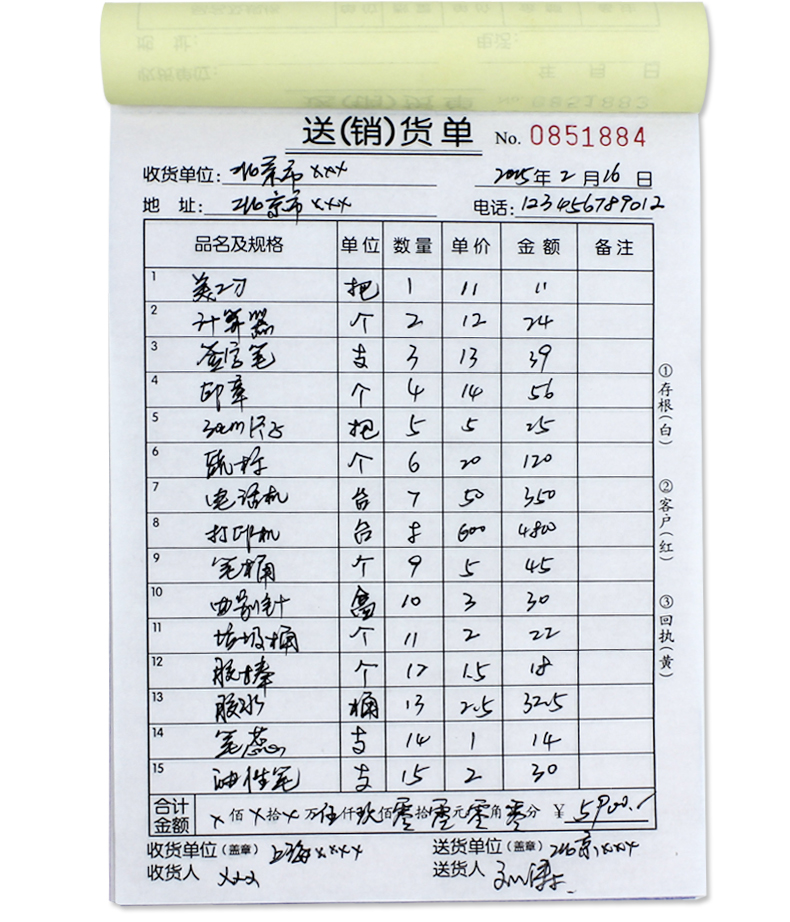 送(销)货单 No. 0851884
收货单位: 北京市xxx 2015年 2 月 16 日
地 址: 北京市xxx 电话: 123456789012
品名及规格 单位 数量 单价 金额 备注
1 美工刀 把 1 11 11
2 计算器 个 2 12 24
3 签字笔 支 3 13 39
4 印章 个 4 14 56
5 30cm尺子 把 5 5 25
6 个 6 20 120
7 电话机 台 7 50 350
8 打印机 台 8 600 4800
9 笔桶 个 9 5 45
10 曲别针 盒 10 3 30
11 垃圾桶 个 11 2 22
12 胶棒 个 12 1.5 18
13 胶水 桶 13 2.5 32.5
14 笔蕊 支 14 1 14
15 油性笔 支 15 2 30
合计金额 x佰x拾x万伍仟玖佰零拾零元零角零分 ¥ 5900.
收货单位(盖章) 上海xxxx 送货单位(盖章) 北京xxx
收货人 xxx 送货人
①存根(白)
②客户(红)
③回执(黄)